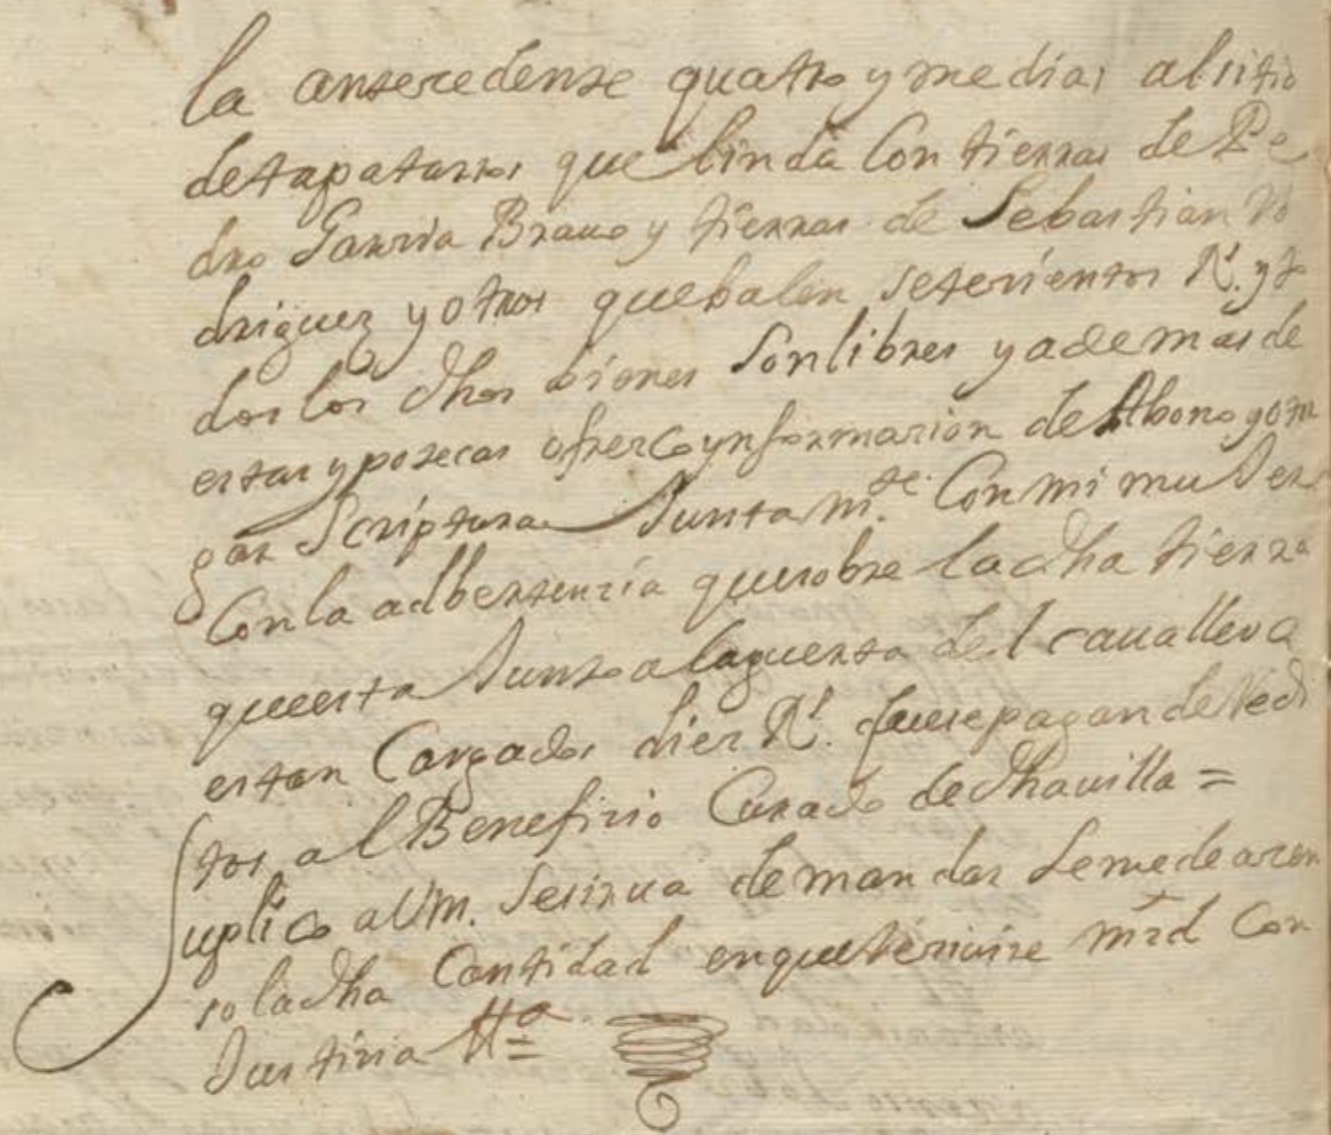 la antecedente quatro y medias al sitio
de tapatarros que linda Con tierras de Pe
dro Garcia Brauo y tierras de Sebastian Ro
driguez y otros que balen setecientos Rs. y to
dos los dhos bienes Son libres y ademas de
estas ypotecas ofrerco ynformacion de Abono y otor
gar Scriptura Juntamte. Con mi muJer
Con la adbertencia que sobre la dha tierra
que esta Junto a la guerta del cauallero
estan Cargados diez Rs. que se pagan de Redi
tos al Beneficio Curado de dha uilla =
Suplico a Um. Se sirua de mandar Se me de a cen
so la dha Cantidad en que reciuire mrd Con
Justicia Ita=